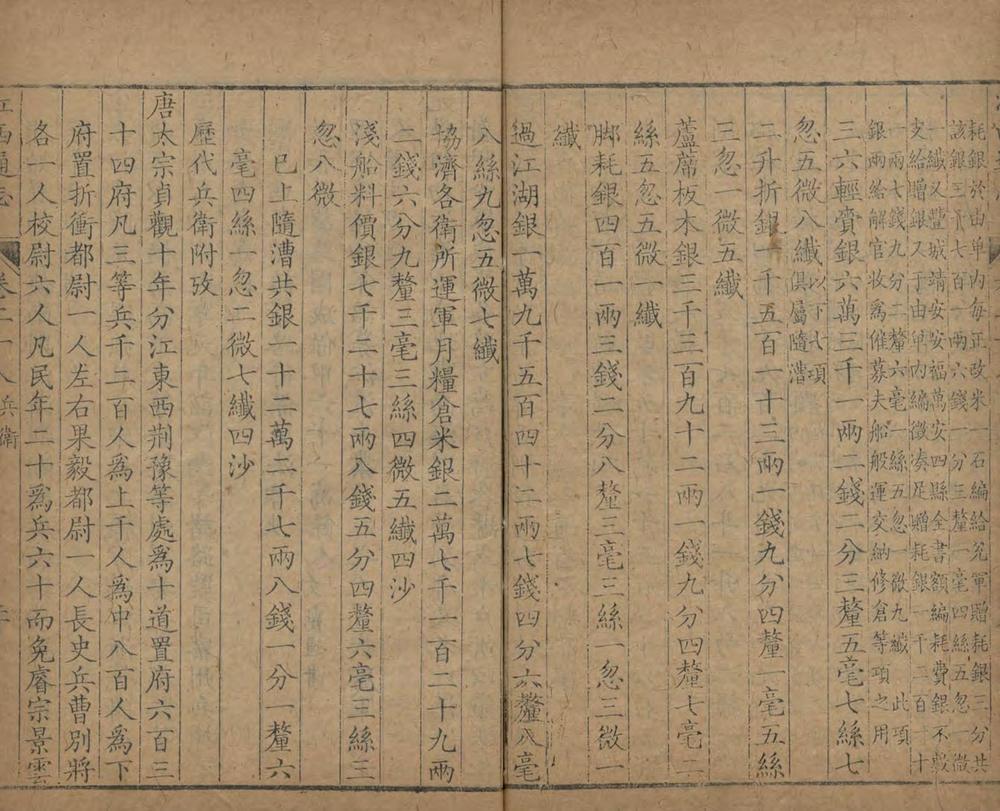 耗銀於由单內每正改米一石編給兌軍贈耗銀三分共
該銀三千七百一兩六錢一分三釐一毫四絲五忽一微
一纖又豐城靖安安福萬安四縣全書額編耗費銀不敷
支給贈銀又于由单內編徵凑足贈耗銀一千二百一十
一兩七錢九分二釐六毫一絲五忽一微九纖此項
銀兩給解官收爲催募夫船般運交納修倉等項之用
三六輕賫銀六萬三千一兩二錢二分三釐五毫七絲七
忽五微八纖以下七項俱屬隨漕
二升折銀一千五百一十三兩一錢九分四釐一毫五絲
三忽一微五纖
蘆蓆板木銀三千三百九十二兩一錢九分四釐七毫二
絲五忽五微一纖
脚耗銀四百一兩三錢二分八釐三毫三絲一忽三微一
纖
過江湖銀一萬九千五百四十二兩七錢四分六釐八毫
八絲九忽五微七纖
協濟各衛所運軍月糧倉米銀二萬七千一百二十九兩
二錢六分九釐三毫三絲四微五纖四沙
淺船料價銀七千二十七兩八錢五分四釐六毫三絲三
忽八微
已上隨漕共銀一十二萬二千七兩八錢一分一釐六
毫四絲一忽二微七纖四沙
歷代兵衛附攷
唐太宗貞觀十年分江東西荆豫等處爲十道置府六百三
十四府凡三等兵千二百人爲上千人爲中八百人爲下
府置折衝都尉一人左右果毅都尉一人長史兵曹別將
各一人校尉六人凡民年二十爲兵六十而免睿宗景雲
江西通志 卷二十八 兵衛